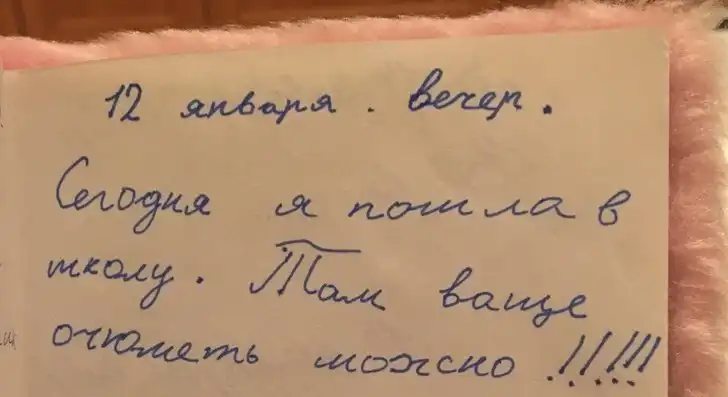 12 января. вечер.
Сегодня я пошла в
школу. Там ваще
очюметь можно!!!!!